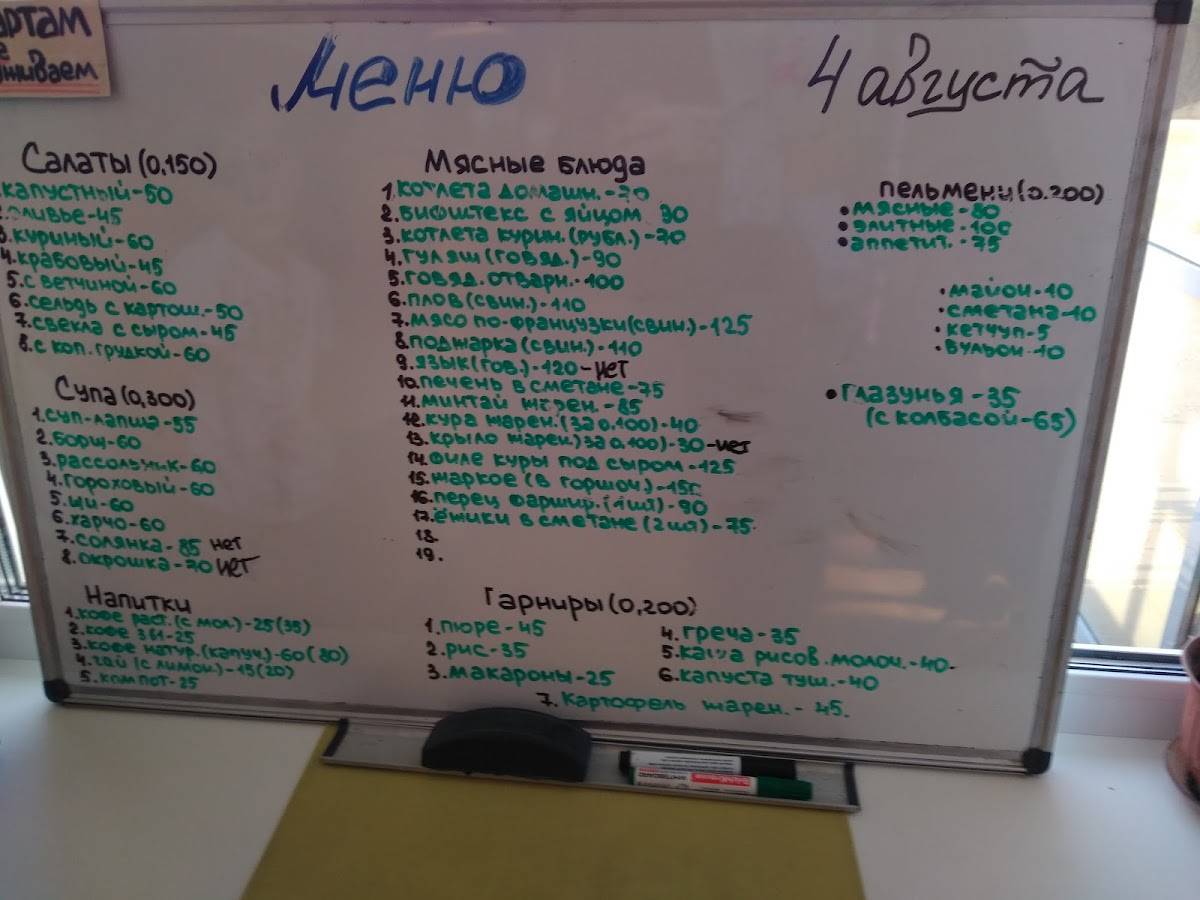 АРТАМ
иваем
Меню
4 августа
Салаты (0,150)
капустный-50
2.оливье-45
3.куриный-60
4.крабовый-45
5.с ветчиной-60
6.сельдь с картош.-50
7.свекла с сыром-45
8.с коп.грудкой-60
Супа (0,300)
1.суп-лапша-55
2.борщ-60
3.рассольник-60
4.гороховый-60
5.щи-60
6.харчо-60
7.солянка-85 нет
8.окрошка-70 нет
Напитки
1.кофе раст.(с мол.)-25(35)
2.кофе 3в1-25
3.кофе натур.(капуч.)-60(80)
4.чай (с лимон.)-15(20)
5.компот-25
Мясные блюда
1.котлета домашн.-70
2.бифштекс с яйцом 90
3.котлета курин.(рубл.)-70
4.гуляш (говяд.)-90
5.говяд.отварн.-100
6.плов (свин.)-110
7.мясо по-французки(свин.)-125
8.поджарка (свин.)-110
9.язык (гов.)-120-нет
10.печень в сметане-75
11.минтай жарен.-85
12.кура жарен.(за 0.100)-40
13.крыло жарен.)за 0.100)-30-нет
14.филе куры под сыром-125
15.жаркое (в горшоч.)-150
16.перец фаршир.(1шт)-90
17.ёжики в сметане (2шт)-75
18.
19.
Гарниры (0,200)
1.пюре-45
2.рис-35
3.макароны-25
4.греча-35
5.каша рисов.молоч.-40-
6.капуста туш.-40
7.Картофель жарен.-45.
пельмени (0.200)
•мясные-80
•элитные-100
•аппетит.-75
•майон-10
•сметана-10
•кетчуп-5
•бульон-10
•Глазунья-35
(с колбасой-65)